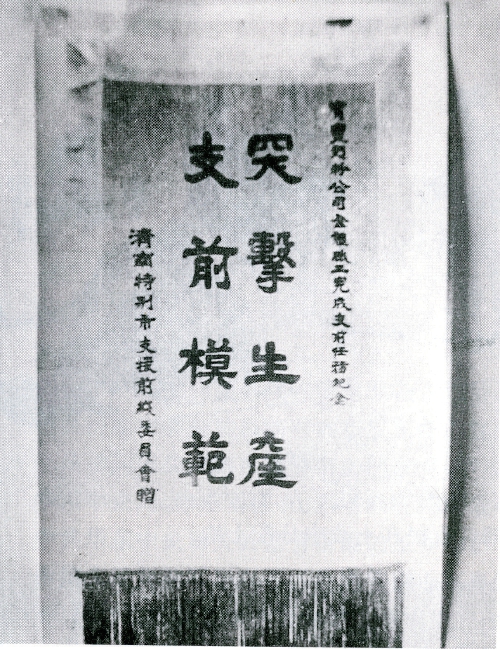 寶豐麵粉公司全體職工完成支前任務紀念
突擊生產
支前模範
濟南特别市支援前綫委員會贈